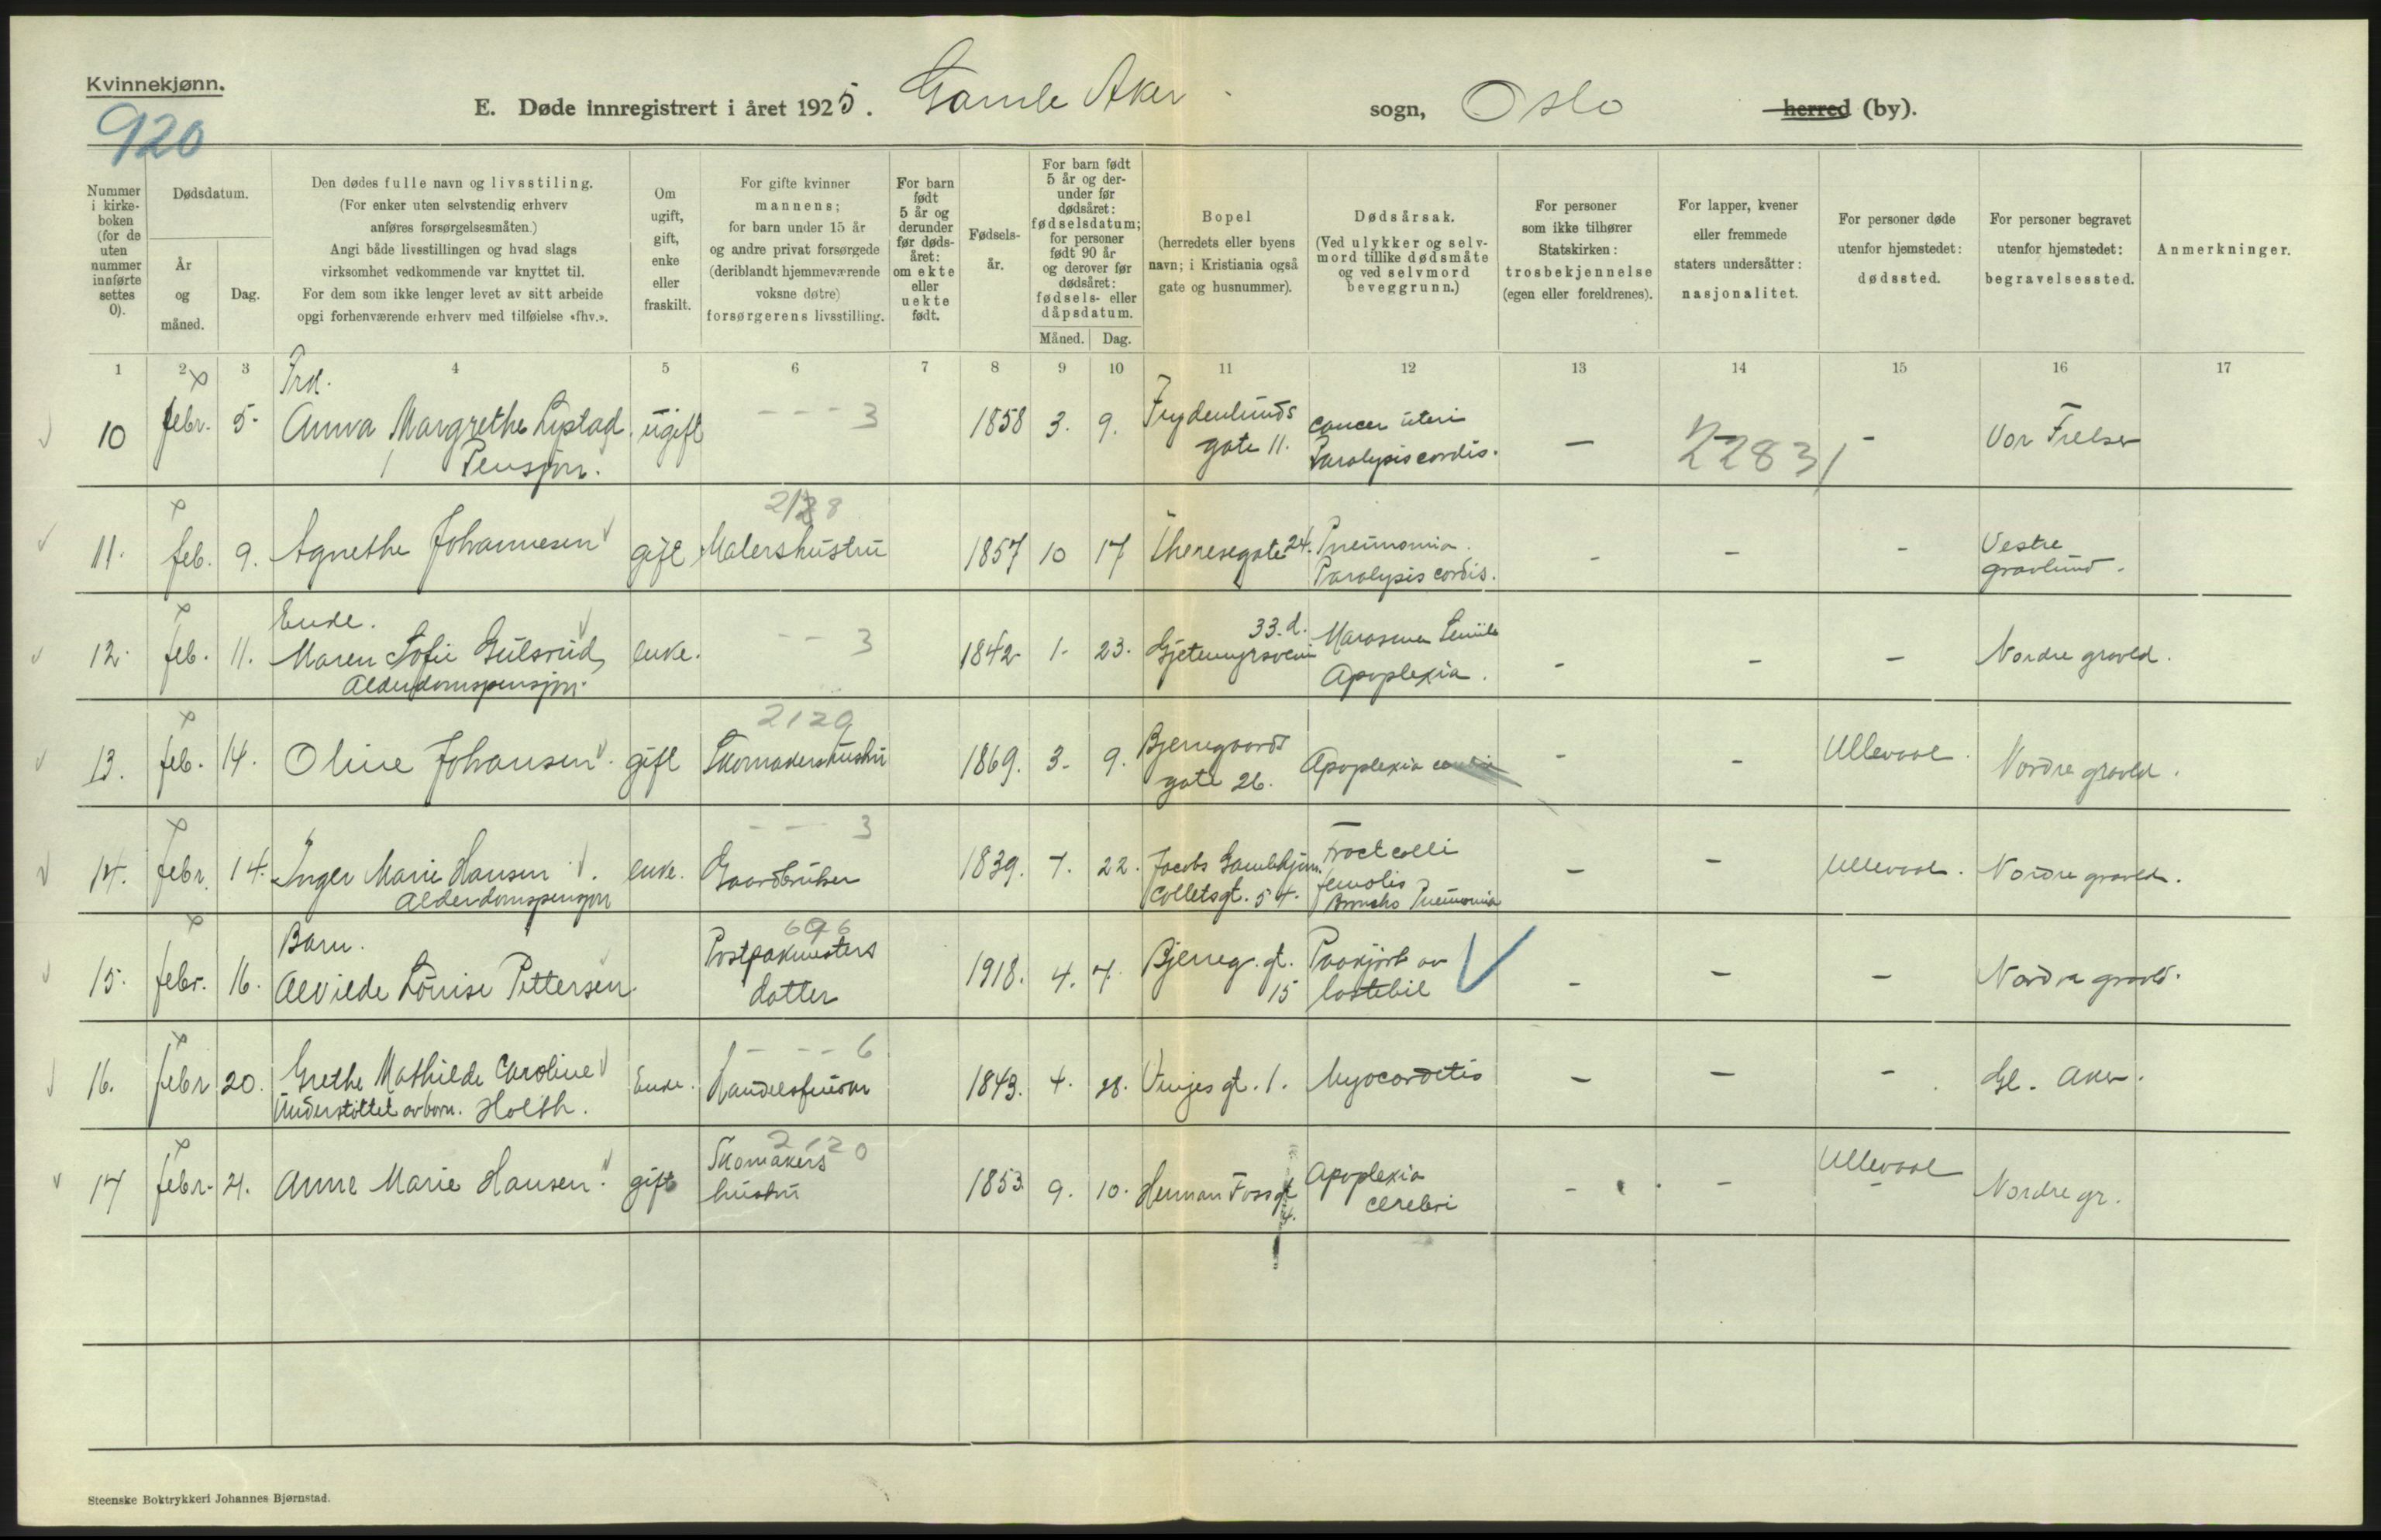 Kvinnekjønn.
920
E. Døde innregistrert i året 1925. Gamle Aker sogn, Oslo herred (by).
Nummer i kirkeboken (for de uten nummer innførte settes 0).
Dødsdatum.
År og måned.
Dag.
Den dødes fulle navn og livsstiling.
(For enker uten selvstendig erhverv
anføres forsørgelsesmåten.)
Angi både livsstillingen og hvad slags
virksomhet vedkommende var knyttet til.
For dem som ikke lenger levet av sitt arbeide
opgi forhenværende erhverv med tilføielse «fhv.».
Om ugift, gift, enke eller fraskilt.
For gifte kvinner
mannens;
for barn under 15 år
og andre privat forsørgede
(deriblandt hjemmeværende
voksne døtre)
forsørgerens livsstilling.
For barn født 5 år og derunder før dødsåret: om ekte eller uekte født.
Fødselsår.
For barn født 5 år og derunder før dødsåret: fødselsdatum; for personer født 90 år og derover før dødsåret: fødsels- eller dåpsdatum.
Måned. Dag.
Bopel
(herredets eller byens
navn; i Kristiania også
gate og husnummer).
Dødsårsak.
(Ved ulykker og selvmord tillike dødsmåte og ved selvmord beveggrunn.)
For personer
som ikke tilhører
Statskirken:
trosbekjennelse
(egen eller foreldrenes).
For lapper, kvener
eller fremmede
staters undersåtter:
nasjonalitet.
For personer døde
utenfor hjemstedet:
dødssted.
For personer begravet
utenfor hjemstedet:
begravelsessted.
Anmerkninger.
1 2 3 4 5 6 7 8 9 10 11 12 13 14 15 16 17
Frk.
10 febr. 5. Anna Margrethe Lystad ugift - - - 3 1858 3. 9. Frydenlunds gate 11. Cancer uteri Paralysis cordis. - 22831 - Vor Frelser
Pensjon.
2128
11. feb. 9. Agnethe Johannesen gift Malershustru 1857 10 17 Theresegate 24. Pneumonia. Paralysis cordis. - - - Vestre gravlund.
Enke.
12. feb. 11. Maren Sofie Gulsrud, enke. - - 3 1842 1. 23. Gjetemyrsvein 33.d. Marasmus Apoplexia. - - - Nordre gravld.
Alderdomspensjon.
2129
13. feb. 14. Oline Johansen. gift Skomakershustru 1869. 3. 9. Bjerregaards gate 26. Apoplexia - - Ullevaal. Nordre gravld.
- - 3
14. febr. 14. Inger Marie Hansen. enke. Gaardbruker 1839. 7. 22. Jacobs Gamlehjem. Colletsgt. 54. Fract colli femoris Broncho Pneumonia - - Ullevaal. Nordre gravld.
Alderdomspensjon
696
Barn.
15. febr. 16. Alvilde Louise Pettersen. Postpakmesters datter 1918. 4. 7. Bjerreg. gt. 15 Paakjørt av lastebil - - - Nordre gravld.
- - - 6
16. febr 20. Grethe Mathilde Caroline Holth. Enke. 1843. 4. 28. Vinjes gt. 1. Myocarditis - - - Gl. Aker.
Understøttet av barn.
2120
17 febr. 21. Anne Marie Hansen. gift Skomakers hustru 1853 9. 10. Herman Foss gt 4. Apoplexia cerebri - - Ullevaal Nordre gr.
Steenske Boktrykkeri Johannes Bjørnstad.